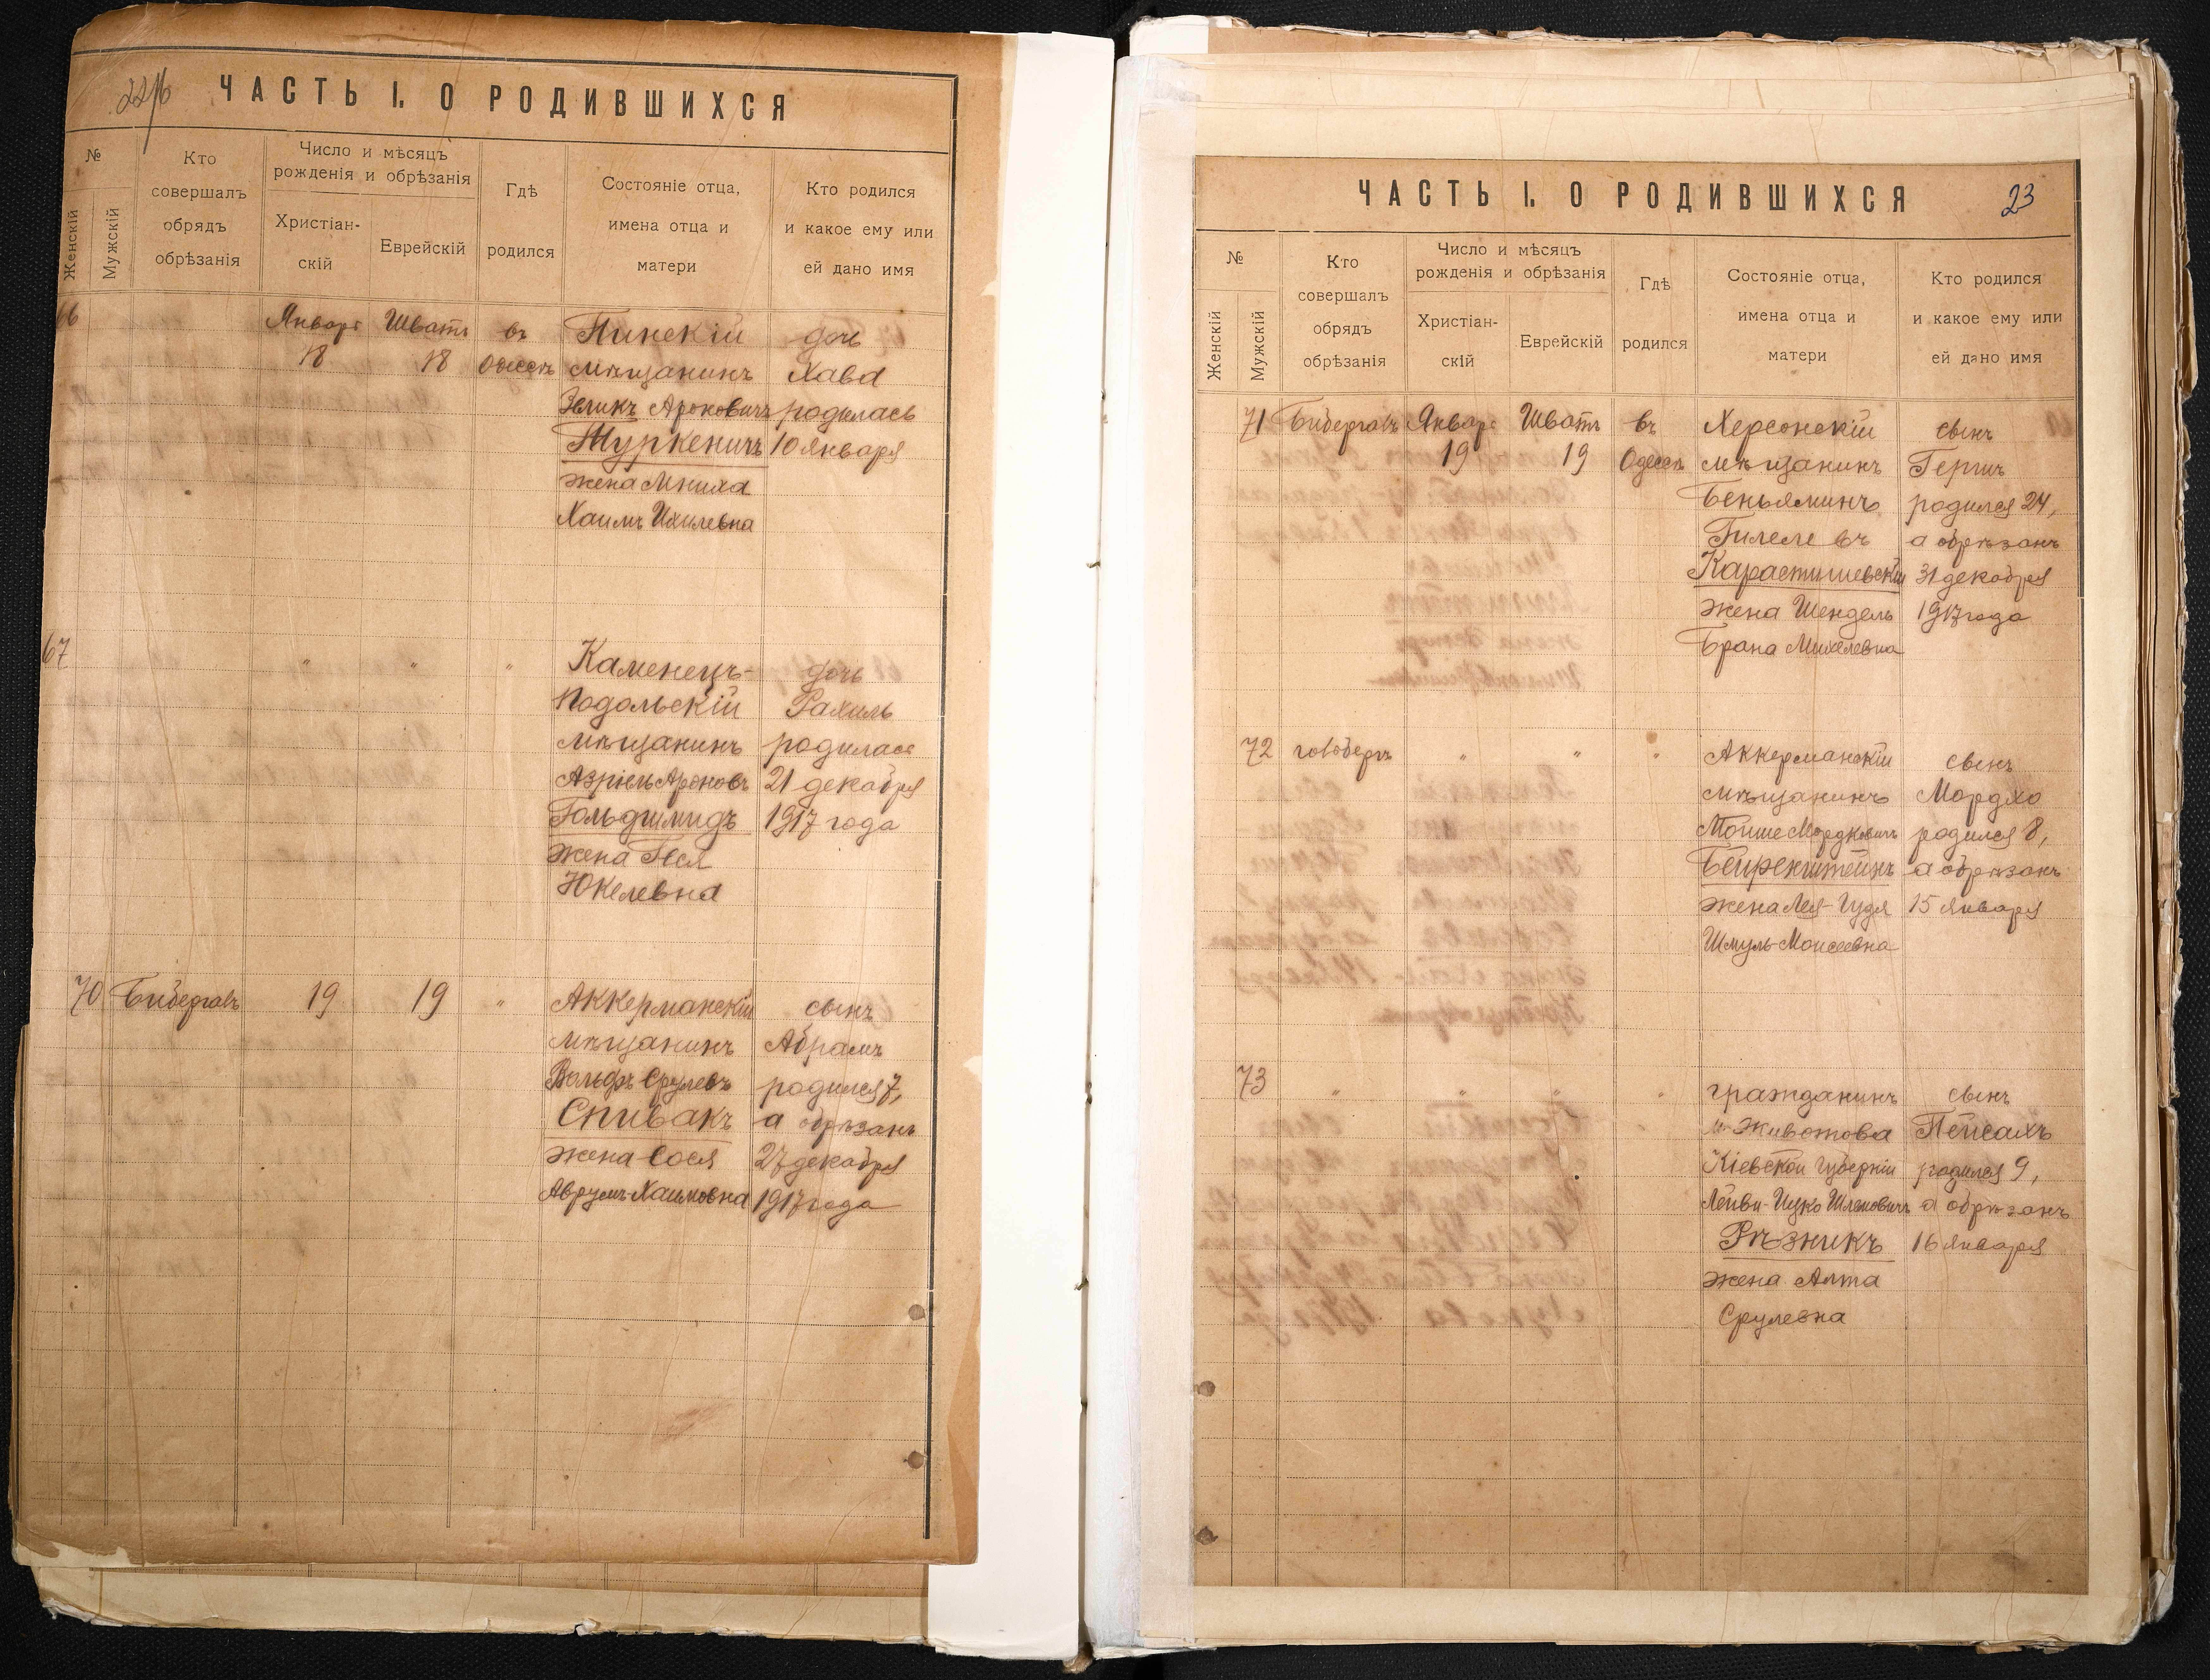 ЧАСТЬ I. О РОДИВШИХСЯ
№
Женскій
Мужскій
Кто
совершалъ
обрядъ
обрѣзанія
Число и мѣсяцъ
рожденія и обрѣзанія
Христіан-
скій
Еврейскій
Гдѣ
родился
Состояніе отца,
имена отца и
матери
Кто родился
и какое ему или
ей дано имя
66
Январ
18
Шватъ
18
въ
Одессѣ
Пинскій
мѣщанинъ
Зеликъ Ароновичъ
Журкевичъ
жена Мниха
Хаимъ Ихилевна
дочь
Хава
родилась
10 января
67
"
"
"
Каменецъ-
Подольскій
мѣщанинъ
Азріель Ароновъ
Гольдшмидъ
жена
Юкелевна
дочь
Рахиль
родилась
21 декабря
1917 года
70
Бибергалъ
19
19
"
Аккерманскій
мѣщанинъ
Вольфъ Срулевъ
Спивакъ
жена Сося
Аврумъ-Хаимовна
сынъ
Абрамъ
родился 7,
а обрѣзанъ
27 декабря
1917 года
ЧАСТЬ I. О РОДИВШИХСЯ
23
№
Женскій
Мужскій
Кто
совершалъ
обрядъ
обрѣзанія
Число и мѣсяцъ
рожденія и обрѣзанія
Христіан-
скій
Еврейскій
Гдѣ
родился
Состояніе отца,
имена отца и
матери
Кто родился
и какое ему или
ей дано имя
71
Бибергалъ
Январ
19
Шватъ
19
въ
Одессѣ
Херсонскій
мѣщанинъ
Беньяминъ
Гилелевъ
Карастишевскій
жена Шендель
Брана Михелевна
сынъ
Гершъ
родился 24,
а обрѣзанъ
31 декабря
1917 года
72
"
"
"
Аккерманскій
мѣщанинъ
Мойше Мордковичъ
жена Лея-Гудя
Шмуль-Моисеевна
сынъ
Мордхо
родился 8,
а обрѣзанъ
15 января
73
"
"
"
"
гражданинъ
м. Животова
Кіевской губерніи
Лейви-Ицко Шлемовичъ
Рѣзникъ
жена Алта
Срулевна
сынъ
Пейсахъ
родился 9,
а обрѣзанъ
16 января